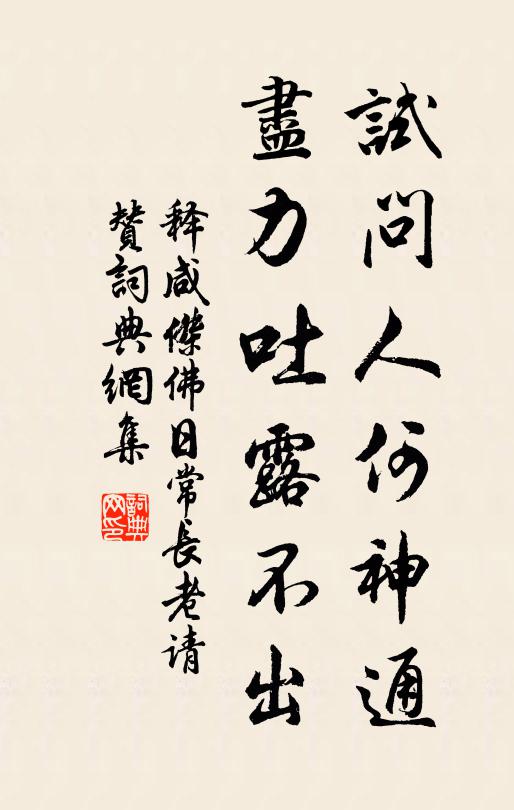 試問人何神通
盡力吐露不出
释咸傑佛日常長老请
贊詞典網集
詞典网印